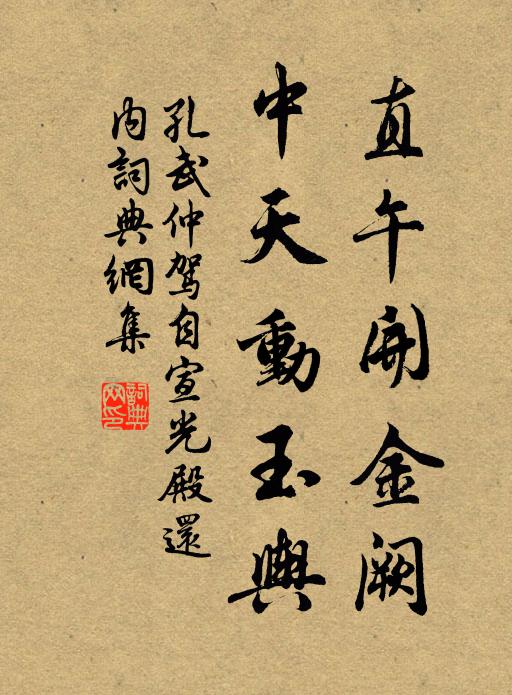 直午開金闕
中天動玉輿
孔武仲駕自宣光殿還
内詞典網集
詞典
网印